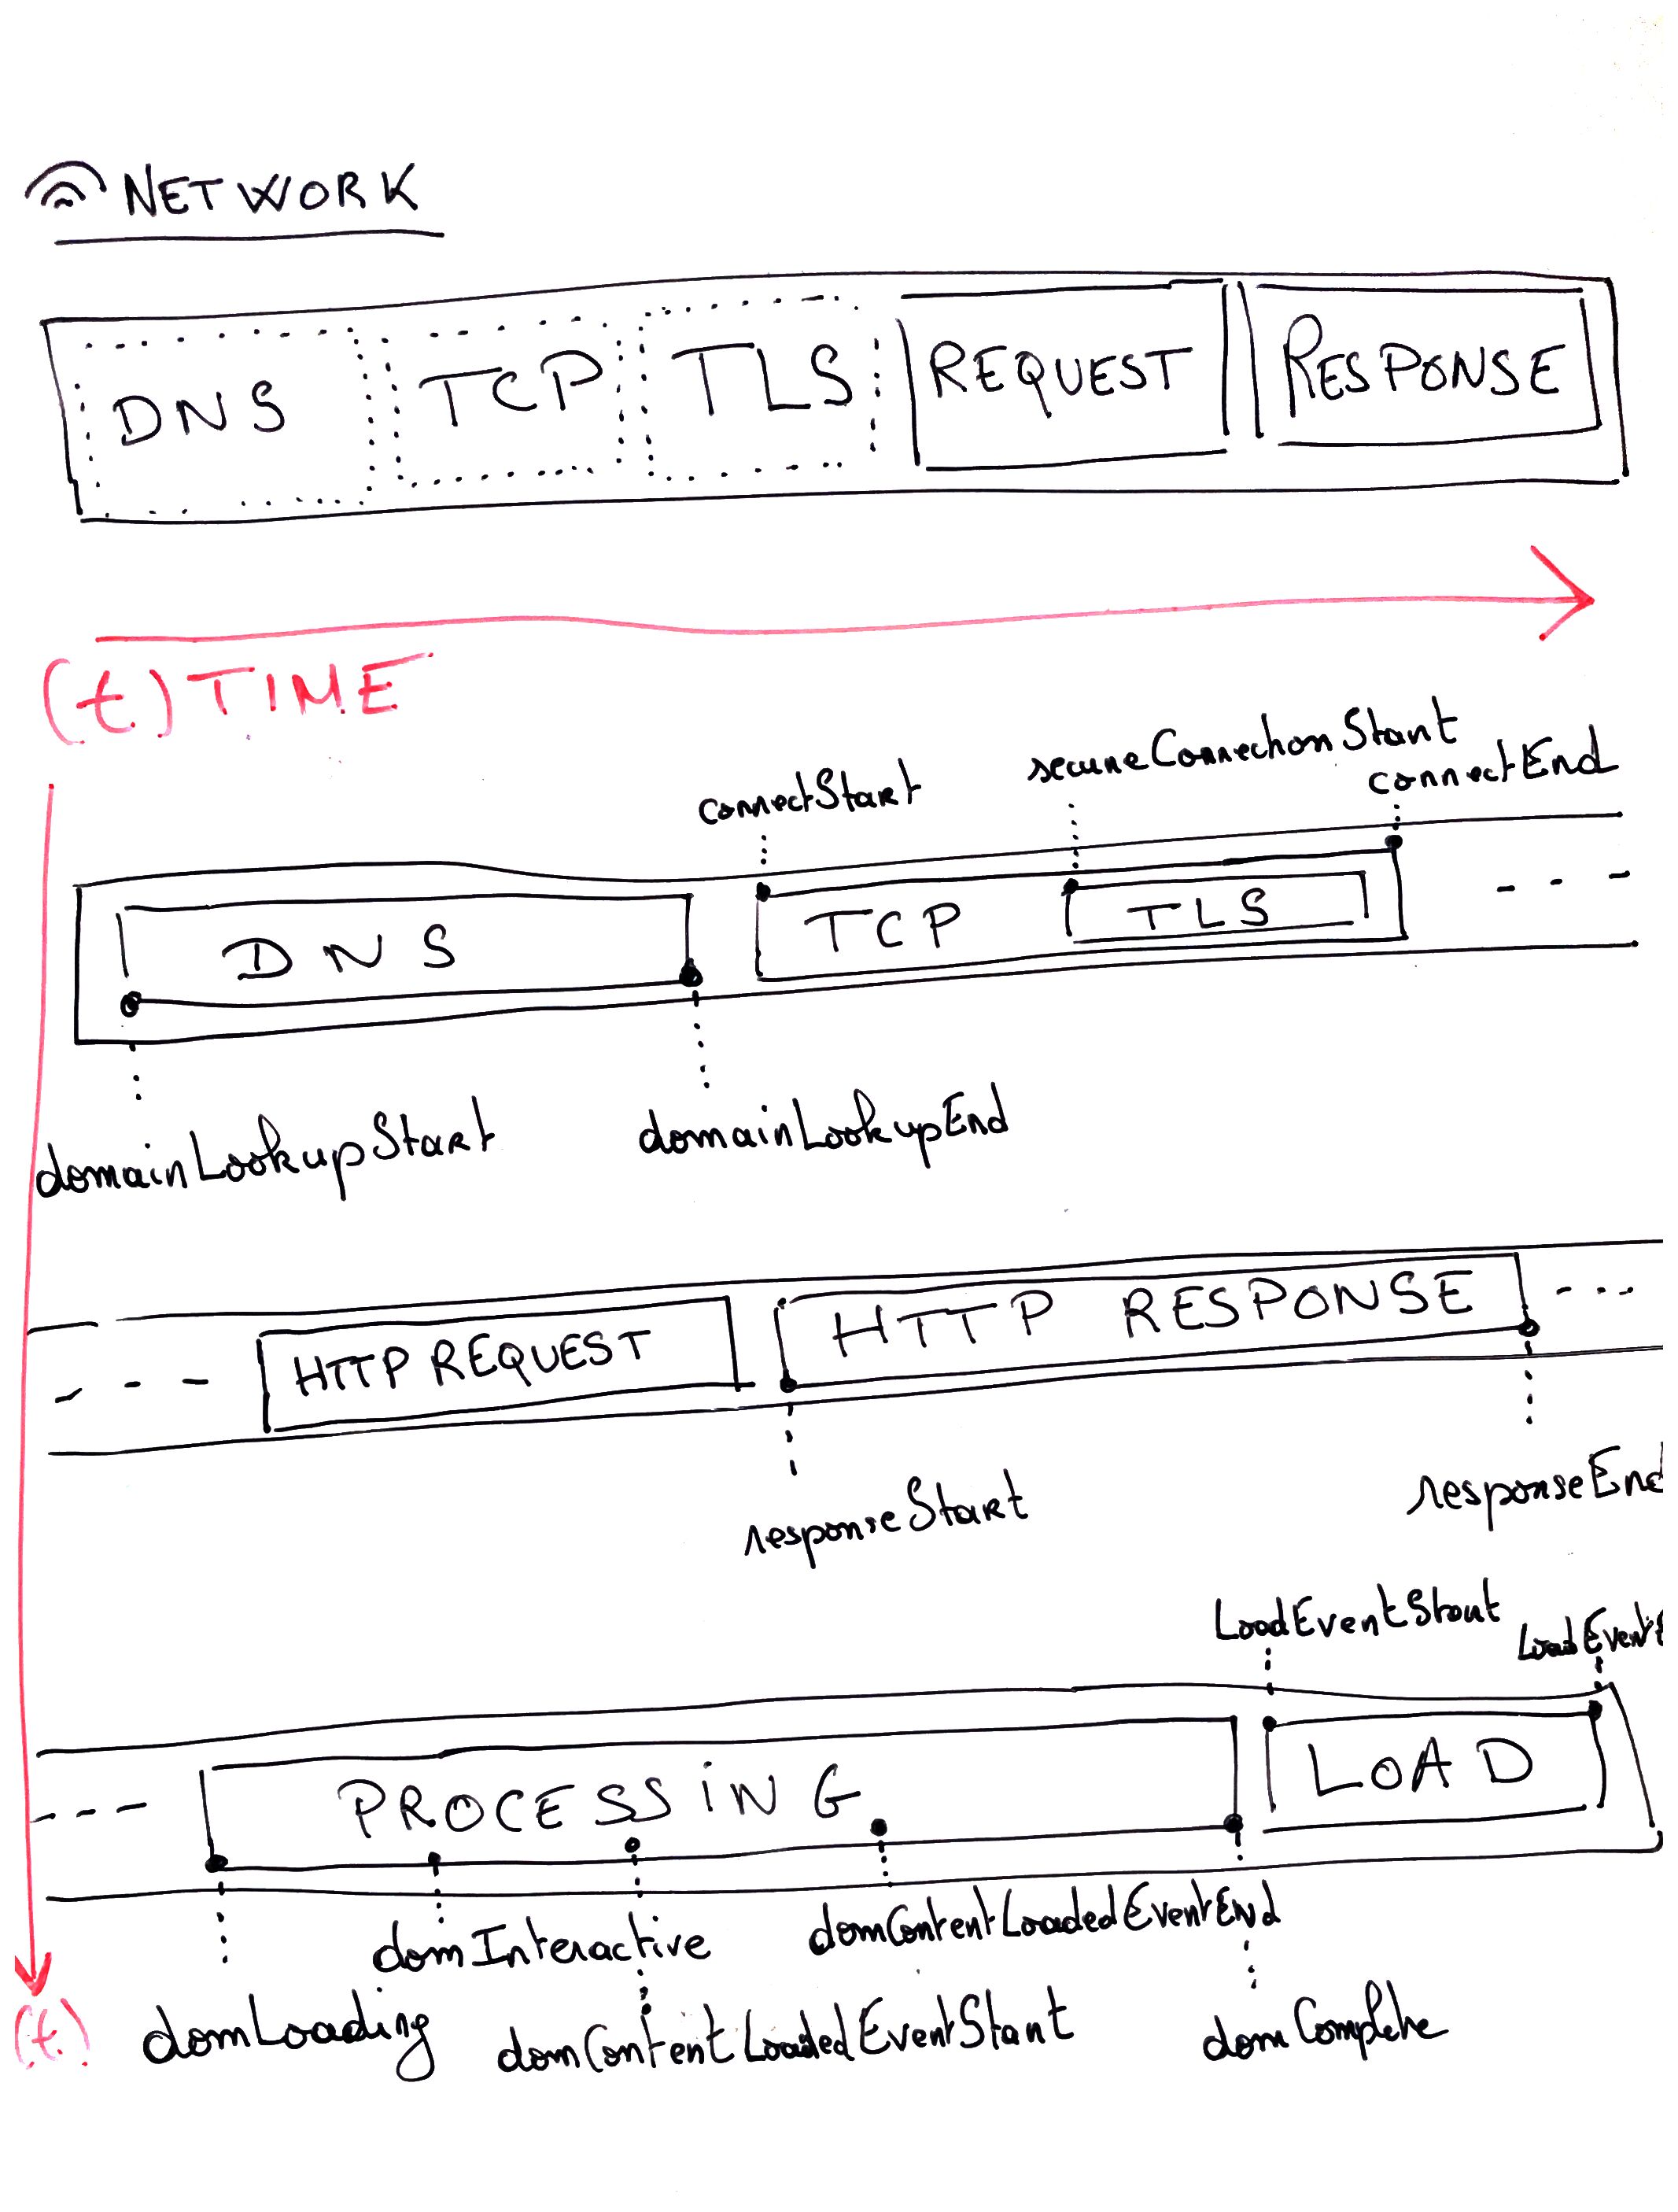 NETWORK
DNS TCP TLS REQUEST RESPONSE
(t) TIME
connectStart secureConnectionStart connectEnd
DNS TCP TLS
domainLookupStart domainLookupEnd
HTTP REQUEST HTTP RESPONSE
responseStart responseEnd
LoadEventStart LoadEventE
PROCESSING LOAD
domInteractive domContentLoadedEventEnd
(t) domLoading domContentLoadedEventStart domComplete